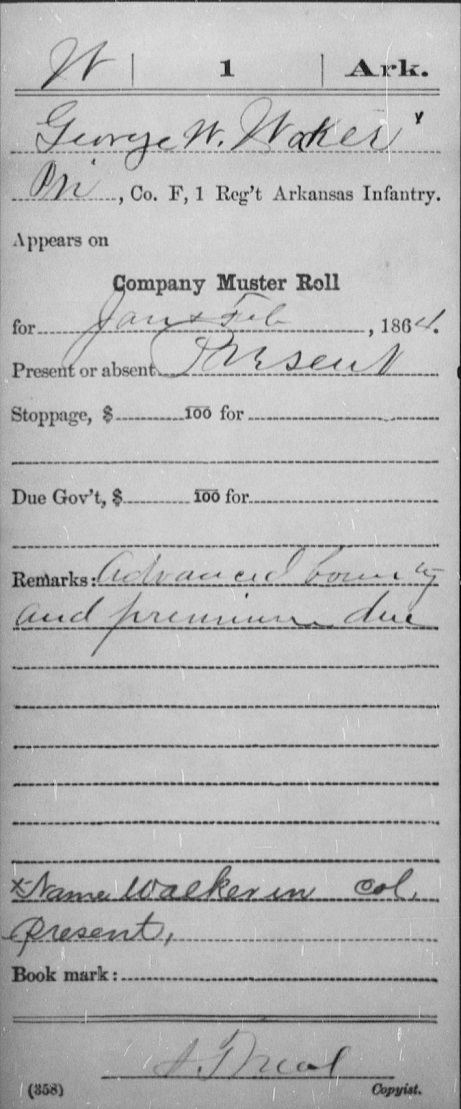 W | 1 | Ark.
George W. Waker x
Pri, Co. F, 1 Reg't Arkansas Infantry.
Appears on
Company Muster Roll
for Jan & Feb, 1864.
Present or absent Present
Stoppage, $ 100 for
Due Gov't, $ 100 for
Remarks: Advanced bounty
and premium due
x Name Walker in col.
present,
Book mark:
(358) Copyist.